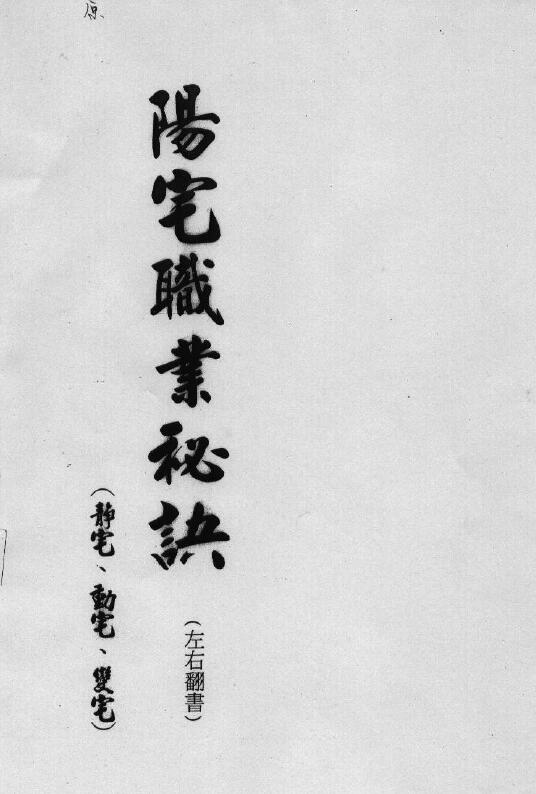 原
陽宅職業秘訣
(左右翻書)
(靜宅、動宅、變宅)